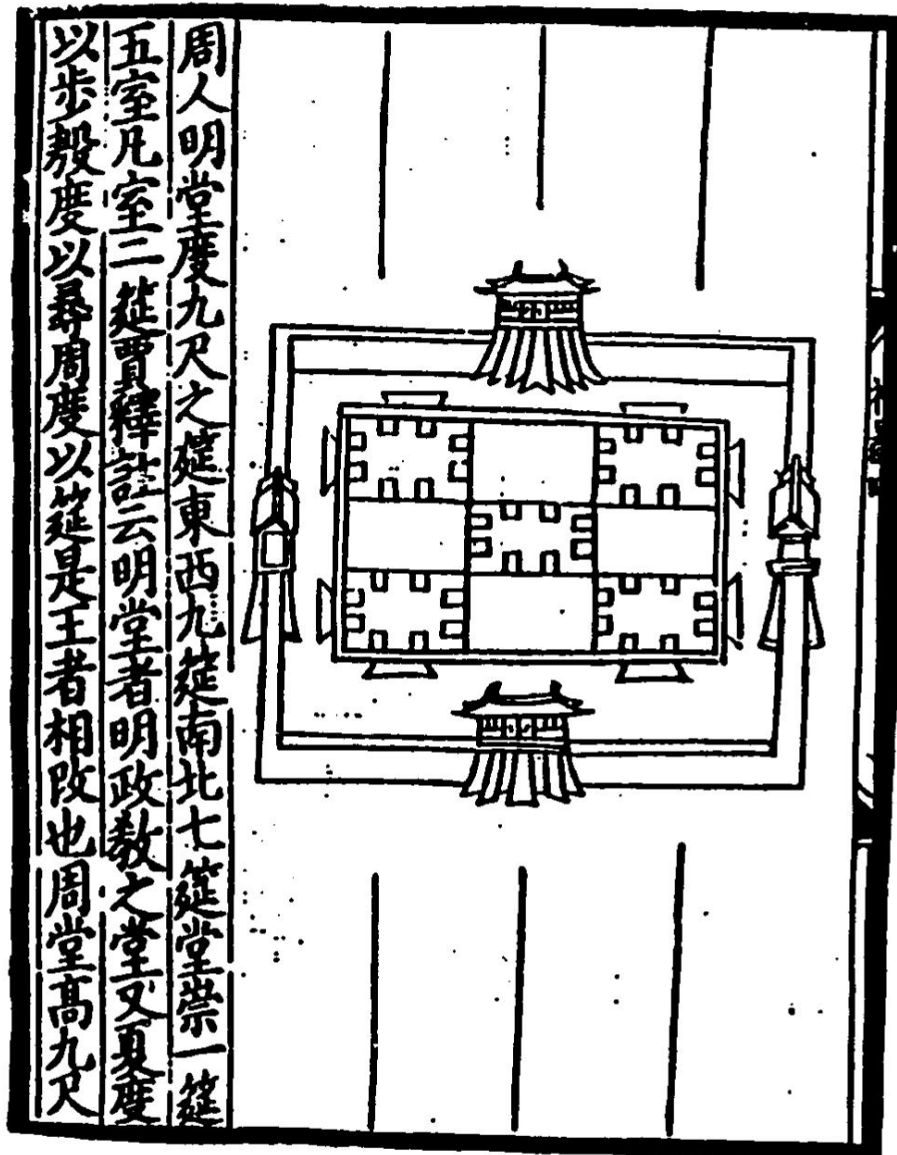 周人明堂度九尺之筵東西九筵南北七筵堂崇一筵
五室凡室二筵賈釋註云明堂者明政敎之堂又夏度
以步殷度以尋周度以筵是王者相改也周堂高九尺